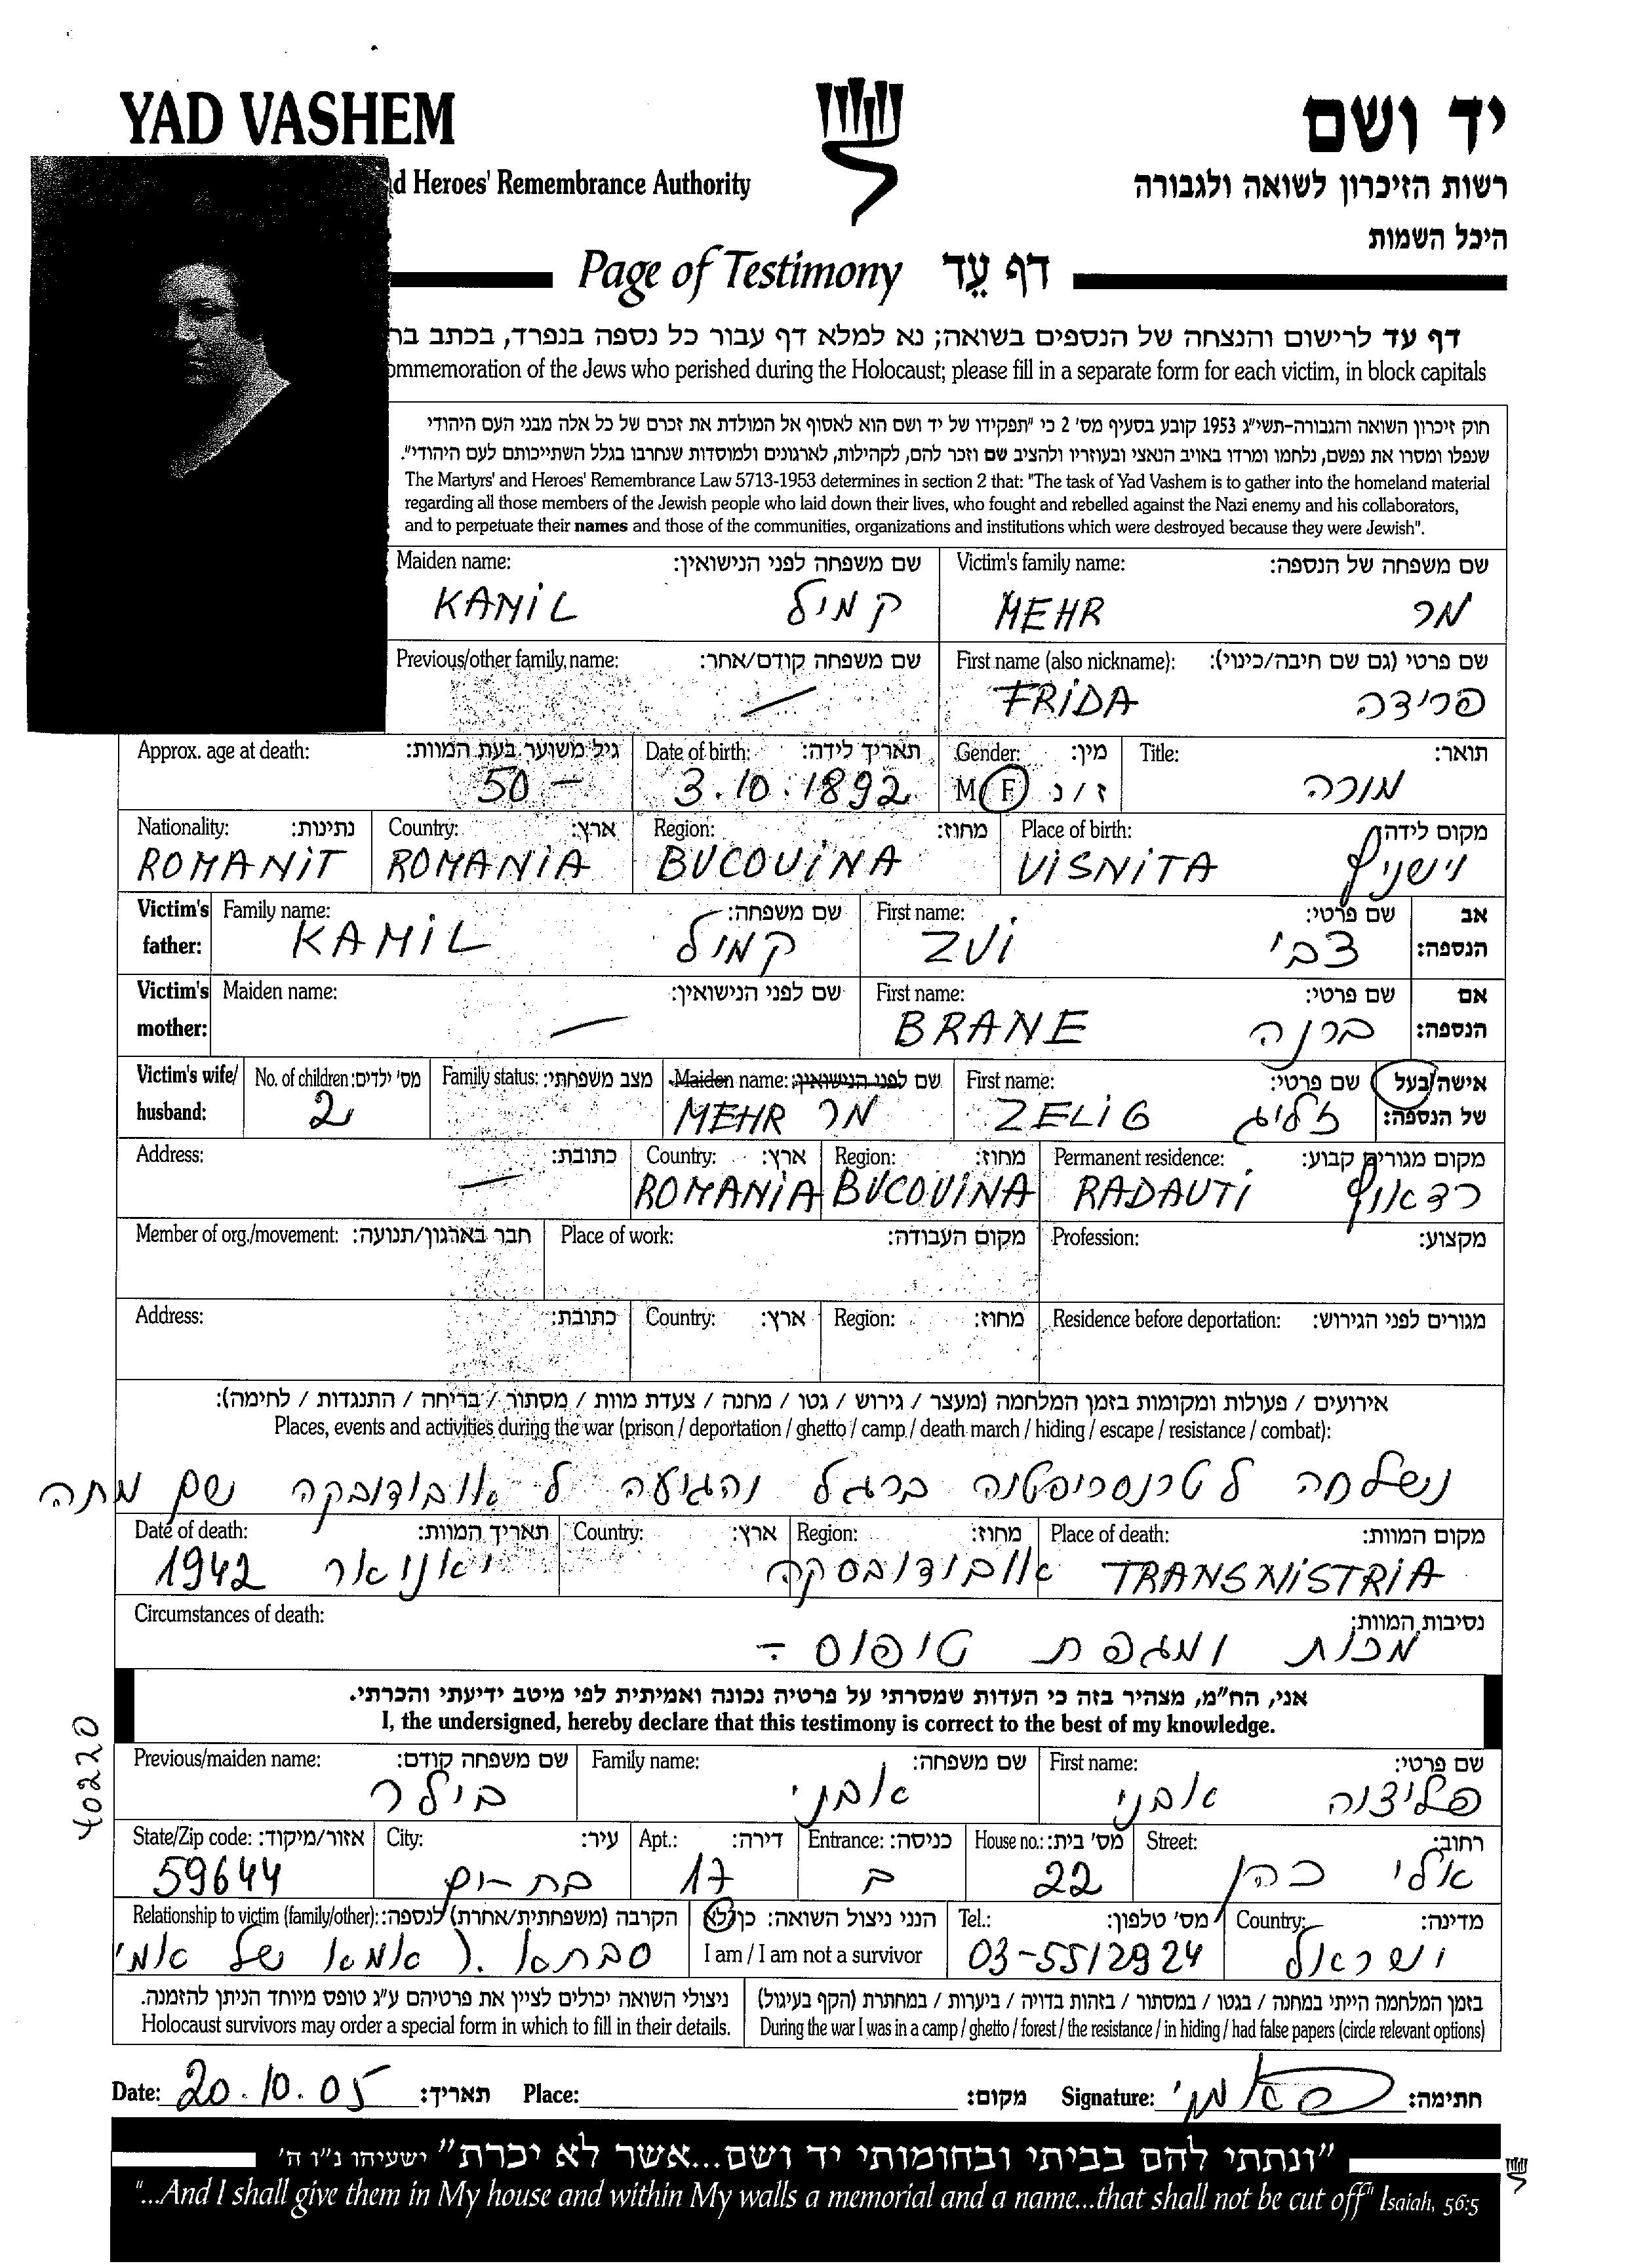 YAD VASHEM
יד ושם
d Heroes' Remembrance Authority
רשות הזיכרון לשואה ולגבורה
היכל השמות
Page of Testimony דף עֵד
דף עד לרישום והנצחה של הנספים בשואה; נא למלא דף עבור כל נספה בנפרד, בכתב
ommemoration of the Jews who perished during the Holocaust; please fill in a separate form for each victim, in block capitals
חוק זיכרון השואה והגבורה-תשי״ג 1953 קובע בסעיף מס׳ 2 כי ״תפקידו של יד ושם הוא לאסוף אל המולדת את זכרם של כל אלה מבני העם היהודי
שנפלו ומסרו את נפשם, נלחמו ומרדו באויב הנאצי ובעוזריו ולהציב שם וזכר להם, לקהילות, לארגונים ולמוסדות שנחרבו בגלל השתייכותם לעם היהודי״.
The Martyrs' and Heroes' Remembrance Law 5713-1953 determines in section 2 that: "The task of Yad Vashem is to gather into the homeland material
regarding all those members of the Jewish people who laid down their lives, who fought and rebelled against the Nazi enemy and his collaborators,
and to perpetuate their names and those of the communities, organizations and institutions which were destroyed because they were Jewish".
Maiden name: שם משפחה לפני הנישואין: Victim's family name: שם משפחה של הנספה:
KAMIL קמיל MEHR מר
Previous/other family name: שם משפחה קודם/אחר: First name (also nickname): שם פרטי (גם שם חיבה/כינוי):
FRIDA פרידה
Approx. age at death: גיל משוער בעת המוות: Date of birth: תאריך לידה: Gender: מין: Title: תואר:
50 - 3.10.1892 M F ז / נ מורה
Nationality: נתינות: Country: ארץ: Region: מחוז: Place of birth: מקום לידה:
ROMANIT ROMANIA BUCOVINA VISNITA וישניץ
Victim's father: Family name: שם משפחה: First name: שם פרטי: אב הנספה:
KAMIL קמיל ZVI צבי
Victim's mother: Maiden name: שם לפני הנישואין: First name: שם פרטי: אם הנספה:
BRANE ברנה
Victim's wife/husband: No. of children: מס׳ ילדים: Family status: מצב משפחתי: Maiden name: שם לפני הנישואין: First name: שם פרטי: אישה/בעל של הנספה:
2 MEHR מר ZELIG זליג
Address: כתובת: Country: ארץ: Region: מחוז: Permanent residence: מקום מגורים קבוע:
ROMANIA BUCOVINA RADAUTI רדאוץ
Member of org./movement: חבר בארגון/תנועה: Place of work: מקום העבודה: Profession: מקצוע:
Address: כתובת: Country: ארץ: Region: מחוז: Residence before deportation: מגורים לפני הגירוש:
אירועים / פעולות ומקומות בזמן המלחמה (מעצר / גירוש / גטו / מחנה / צעדת מוות / מסתור / בריחה / התנגדות / לחימה):
Places, events and activities during the war (prison / deportation / ghetto / camp / death march / hiding / escape / resistance / combat):
נשלחה ברגל והגיעה ל אובודובקה ושם מתה
Date of death: תאריך המוות: Country: ארץ: Region: מחוז: Place of death: מקום המוות:
1942 יאנואר אובודובסקה TRANSNISTRIA
Circumstances of death: נסיבות המוות:
מכות ומגפת טיפוס -
אני, הח״מ, מצהיר בזה כי העדות שמסרתי על פרטיה נכונה ואמיתית לפי מיטב ידיעתי והכרתי.
I, the undersigned, hereby declare that this testimony is correct to the best of my knowledge.
40220
Previous/maiden name: שם משפחה קודם: Family name: שם משפחה: First name: שם פרטי:
בילר אבני פליצוה אבני
State/Zip code: אזור/מיקוד: City: עיר: Apt.: דירה: Entrance: כניסה: House no.: מס׳ בית: Street: רחוב:
59644 בת-ים 17 ב 22 אלי כהן
Relationship to victim (family/other): הקרבה (משפחתית/אחרת) לנספה: הנני ניצול השואה: כן/לא Tel.: מס׳ טלפון: Country: מדינה:
סבתא ( אמא של אמי I am / I am not a survivor 03-5512924 ישראל
ניצולי השואה יכולים לציין את פרטיהם ע״ג טופס מיוחד הניתן להזמנה. בזמן המלחמה הייתי במחנה / בגטו / במסתור / בזהות בדויה / ביערות / במחתרת (הקף בעיגול)
Holocaust survivors may order a special form in which to fill in their details. During the war I was in a camp / ghetto / forest / the resistance / in hiding / had false papers (circle relevant options)
Date: 20.10.05 תאריך: Place: מקום: Signature: חתימה:
״ונתתי להם בביתי ובחומותי יד ושם...אשר לא יכרת״ ישעיהו נ״ו ה׳
"...And I shall give them in My house and within My walls a memorial and a name...that shall not be cut off" Isaiah, 56:5